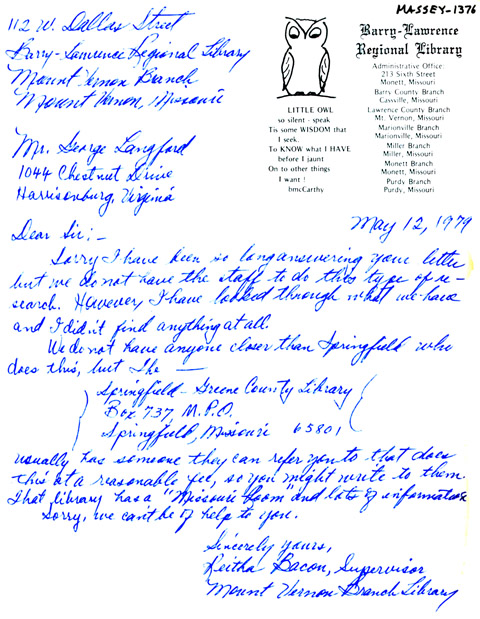 MASSEY-1376
112 W. Dallas Street
Barry-Lawrence Regional Library
Mount Vernon Branch
Mount Vernon, Missouri
Barry-Lawrence
Regional Library
Administrative Office:
213 Sixth Street
Monett, Missouri
Barry County Branch
Cassville, Missouri
Lawrence County Branch
Mt. Vernon, Missouri
Marionville Branch
Marionville, Missouri
Miller Branch
Miller, Missouri
Monett Branch
Monett, Missouri
Purdy Branch
Purdy, Missouri
LITTLE OWL
so silent - speak
Tis some WISDOM that
I seek.
To KNOW what I HAVE
before I jaunt
On to other things
I want!
bmcCarthy
Mr. George Langford
1044 Chestnut Drive
Harrisonburg, Virginia
May 12, 1979
Dear Sir;-
Sorry I have been so long answering your letter
but we do not have the staff to do this type of re-
search. However I have looked through what we have
and I didn't find anything at all.
We do not have anyone closer than Springfield who
does this, but the —
Springfield-Greene County Library
Box 737, M.P.O.
Springfield, Missouri 65801
usually has someone they can refer you to that does
this at a reasonable fee, so you might write to them.
That library has a "Missouri Room and lots of information
Sorry, we can't be of help to you.
Sincerely yours,
Reitha Bacon, Supervisor
Mount Vernon Branch Library